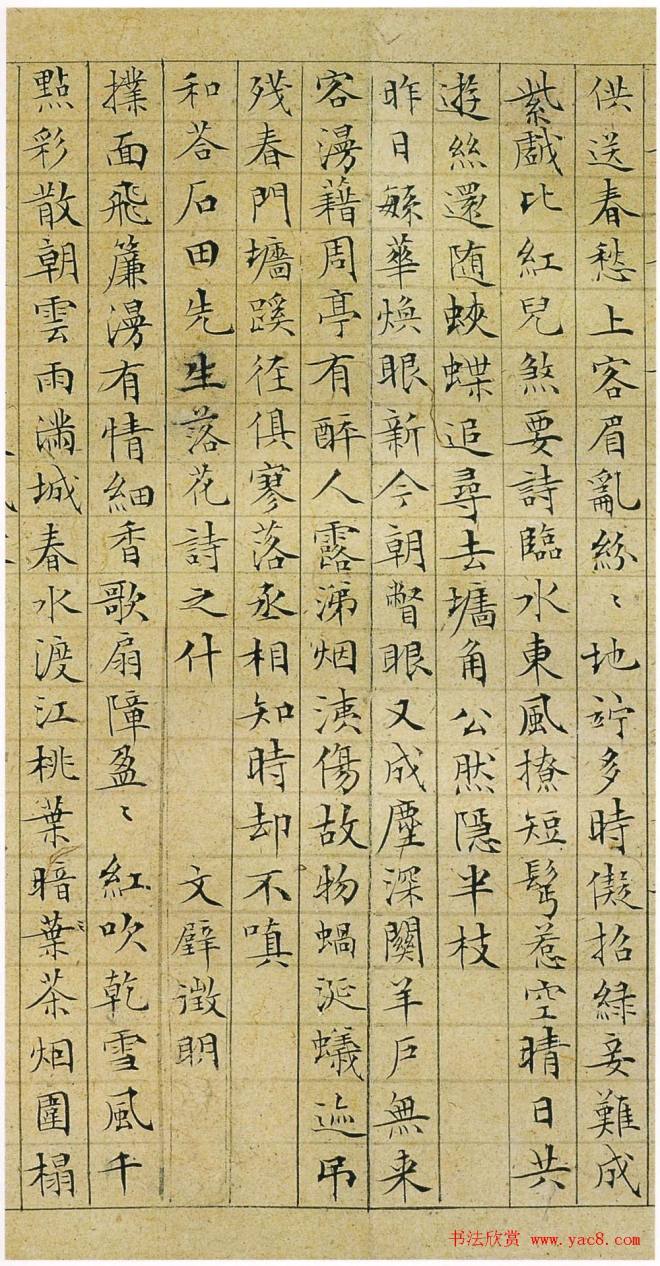 供送春愁上客眉亂紛〻地竚多時儗招綠妾難成
紫戲比紅兒煞要詩臨水東風撩短鬂惹空晴日共
遊絲還随蛺蝶追尋去墻角公然隱半枝
昨日繁華煥眼新今朝瞥眼又成塵深關羊戶無来
容漫藉周亭有醉人露涕烟洟傷故物蝸涎蟻迹弔
殘春門墻蹊徑俱寥落丞相知時却不嗔
和荅石田先生落花詩之什 文壁徵明
撲面飛簾漫有情細香歌扇障盈〻紅吹乾雪風千
點彩散朝雲雨滿城春水渡江桃葉暗葉茶烟圍榻
书法欣赏 www.yac8.com